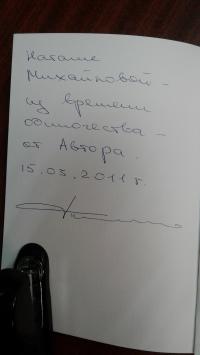 Наташе
Михайловой –
из времени
одиночества –
от Автора.
15.03.2011 г.